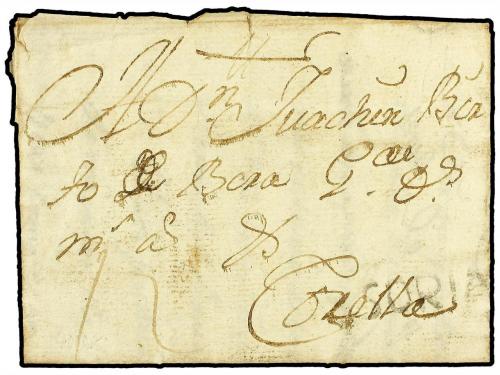 A Dn Juachin Ber
to de Bera G.de ds
ms as ds
Corella
SORIA